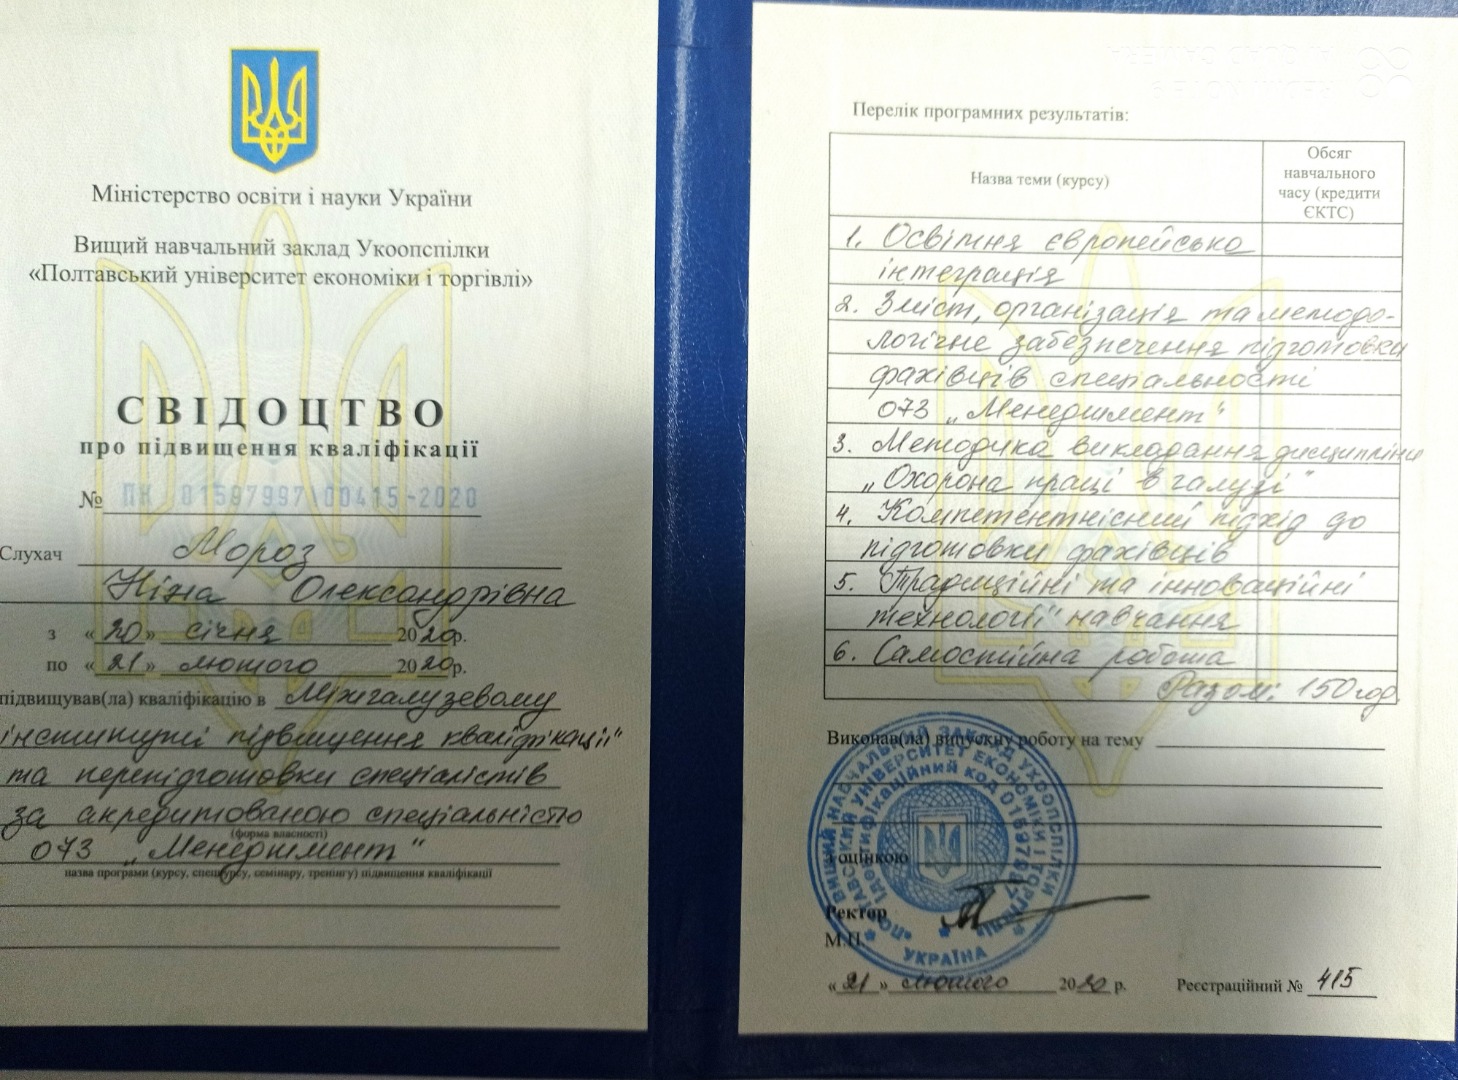 Міністерство освіти і науки України
Вищий навчальний заклад Укоопспілки
«Полтавський університет економіки і торгівлі»
СВІДОЦТВО
про підвищення кваліфікації
№ ПК 01597997\00415-2020
Слухач Мороз
Ніна Олександрівна
з «20» січня 2020р.
по «21» лютого 2020р.
підвищував(ла) кваліфікацію в Міжгалузевому
інституті підвищення кваліфікації
та перепідготовки спеціалістів
за акредитованою спеціальністю
(форма власності)
073 „Менеджмент“
назва програми (курсу, спецкурсу, семінару, тренінгу) підвищення кваліфікації
Перелік програмних результатів:
Назва теми (курсу)
Обсяг
навчального
часу (кредити
ЄКТС)
1. Освітня європейська
інтеграція
2. Зміст, організація та методо-
логічне забезпечення підготовки
фахівців спеціальності
073 „Менеджмент“
3. Методика викладання дисципліни
„Охорона праці в галузі“
4. Компетентнісний підхід до
підготовки фахівців
5. Традиційні та інноваційні
технології навчання
6. Самостійна робота
Разом: 150 год.
Виконав(ла) випускну роботу на тему
з оцінкою
Ректор
М.П.
ВИЩИЙ НАВЧАЛЬНИЙ ЗАКЛАД УКООПСПІЛКИ
«ПОЛТАВСЬКИЙ УНІВЕРСИТЕТ ЕКОНОМІКИ І ТОРГІВЛІ»
Ідентифікаційний код 01597997
УКРАЇНА
«21» лютого 2020 р.
Реєстраційний № 415